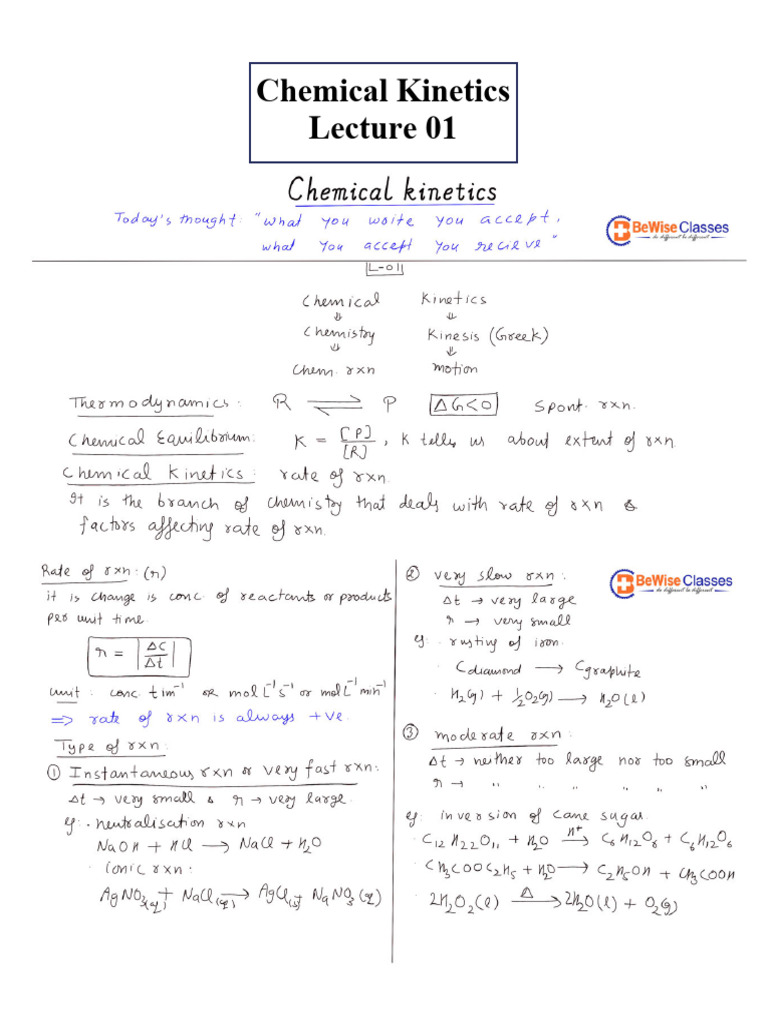 Chemical Kinetics
Lecture 01
Chemical kinetics
Today's thought: "what you write you accept,
what you accept you recieve"
BeWise Classes
be different be different
L-01
Chemical Kinetics
⇓ ⇓
Chemistry Kinesis (Greek)
⇓ ⇓
Chem. rxn motion
Thermodynamics: R ⇌ P ΔG<0 Spont. rxn.
Chemical Equilibrium: K = [P]/[R], K tells us about extent of rxn
Chemical Kinetics: rate of rxn.
It is the branch of chemistry that deals with rate of rxn &
factors affecting rate of rxn.
Rate of rxn: (r)
it is change is conc. of reactants or products
per unit time.
r = |ΔC/Δt|
unit: conc. tim⁻¹ or mol L⁻¹ s⁻¹ or mol L⁻¹ min⁻¹
⇒ rate of rxn is always +ve.
Type of rxn:
① Instantaneous rxn or very fast rxn:
Δt → very small & r → very large.
eg: · neutralisation rxn
NaOH + HCl → NaCl + H₂O
· ionic rxn:
AgNO₃(q) + NaCl(q) → AgCl(s)↓ + NaNO₃(q)
② very slow rxn:
BeWise Classes
be different be different
Δt → very large
r → very small
eg: · rusting of iron.
· Cdiamond → Cgraphite
· H₂(g) + ½O₂(g) → H₂O(l)
③ moderate rxn:
Δt → neither too large nor too small
r → " " " " "
eg: inversion of cane sugar.
· C₁₂H₂₂O₁₁ + H₂O —H⁺→ C₆H₁₂O₆ + C₆H₁₂O₆
· CH₃COOC₂H₅ + H₂O → C₂H₅OH + CH₃COOH
· 2H₂O₂(l) —Δ→ 2H₂O(l) + O₂(g)